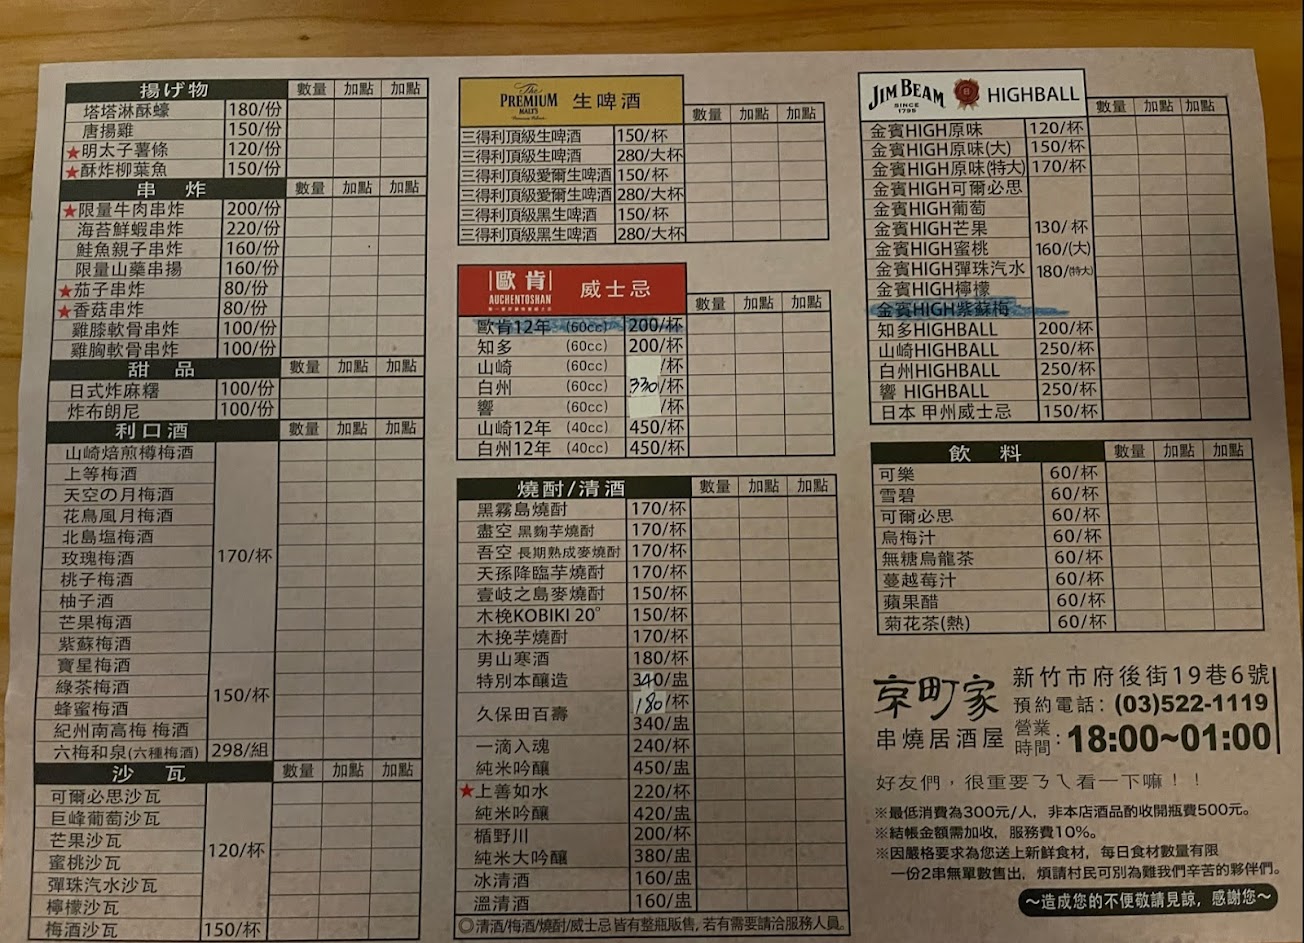 揚げ物 數量 加點 加點
塔塔淋酥蠔 180/份
唐揚雞 150/份
★明太子薯條 120/份
★酥炸柳葉魚 150/份
串 炸 數量 加點 加點
★限量牛肉串炸 200/份
海苔鮮蝦串炸 220/份
鮭魚親子串炸 160/份
限量山藥串揚 160/份
★茄子串炸 80/份
★香菇串炸 80/份
雞膝軟骨串炸 100/份
雞胸軟骨串炸 100/份
甜 品 數量 加點 加點
日式炸麻糬 100/份
炸布朗尼 100/份
利口酒 數量 加點 加點
山崎焙煎樽梅酒
上等梅酒
天空の月梅酒
花鳥風月梅酒
北島塩梅酒
玫瑰梅酒 170/杯
桃子梅酒
柚子酒
芒果梅酒
紫蘇梅酒
寶星梅酒
綠茶梅酒 150/杯
蜂蜜梅酒
紀州南高梅 梅酒
六梅和泉(六種梅酒) 298/組
沙 瓦 數量 加點 加點
可爾必思沙瓦
巨峰葡萄沙瓦
芒果沙瓦 120/杯
蜜桃沙瓦
彈珠汽水沙瓦
檸檬沙瓦
梅酒沙瓦 150/杯
The PREMIUM MALT'S 生啤酒 數量 加點 加點
三得利頂級生啤酒 150/杯
三得利頂級生啤酒 280/大杯
三得利頂級愛爾生啤酒 150/杯
三得利頂級愛爾生啤酒 280/大杯
三得利頂級黑生啤酒 150/杯
三得利頂級黑生啤酒 280/大杯
歐肯 AUCHENTOSHAN 威士忌 數量 加點 加點
歐肯12年 (60cc) 200/杯
知多 (60cc) 200/杯
山崎 (60cc) /杯
白州 (60cc) 330/杯
響 (60cc) /杯
山崎12年 (40cc) 450/杯
白州12年 (40cc) 450/杯
燒酎/清酒 數量 加點 加點
黑霧島燒酎 170/杯
盡空 黑麴芋燒酎 170/杯
吾空 長期熟成麥燒酎 170/杯
天孫降臨芋燒酎 170/杯
壹岐之島麥燒酎 150/杯
木梚KOBIKI 20° 150/杯
木挽芋燒酎 170/杯
男山寒酒 180/杯
特別本釀造 340/盅
久保田百壽 180/杯
340/盅
一滴入魂 240/杯
純米吟釀 450/盅
★上善如水 220/杯
純米吟釀 420/盅
楯野川 200/杯
純米大吟釀 380/盅
冰清酒 160/盅
溫清酒 160/盅
◎清酒/梅酒/燒酎/威士忌 皆有整瓶販售, 若有需要請洽服務人員。
JIM BEAM SINCE 1795 HIGHBALL 數量 加點 加點
金賓HIGH原味 120/杯
金賓HIGH原味(大) 150/杯
金賓HIGH原味(特大) 170/杯
金賓HIGH可爾必思
金賓HIGH葡萄
金賓HIGH芒果 130/杯
金賓HIGH蜜桃 160/(大)
金賓HIGH彈珠汽水 180/(特大)
金賓HIGH檸檬
金賓HIGH紫蘇梅
知多HIGHBALL 200/杯
山崎HIGHBALL 250/杯
白州HIGHBALL 250/杯
響 HIGHBALL 250/杯
日本 甲州威士忌 150/杯
飲 料 數量 加點 加點
可樂 60/杯
雪碧 60/杯
可爾必思 60/杯
烏梅汁 60/杯
無糖烏龍茶 60/杯
蔓越莓汁 60/杯
蘋果醋 60/杯
菊花茶(熱) 60/杯
京町家
串燒居酒屋
新竹市府後街19巷6號
預約電話：(03)522-1119
營業時間：18:00~01:00
好友們，很重要ㄋㄟ看一下嘛！！
※最低消費為300元/人，非本店酒品酌收開瓶費500元。
※結帳金額需加收，服務費10%。
※因嚴格要求為您送上新鮮食材，每日食材數量有限
一份2串無單數售出，煩請村民可別為難我們辛苦的夥伴們。
～造成您的不便敬請見諒，感謝您～